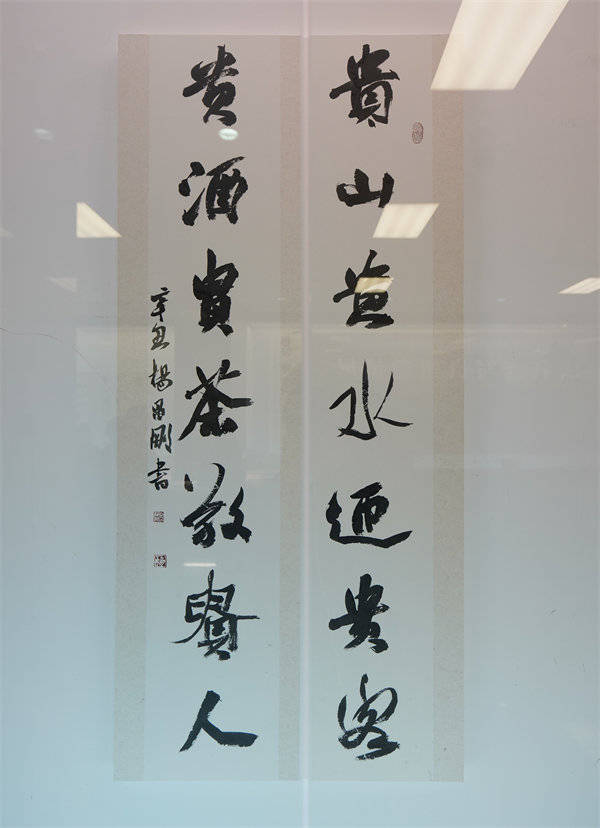 貴山貴水迎貴客
貴酒貴茶敬賢人
辛丑楊昌剛書